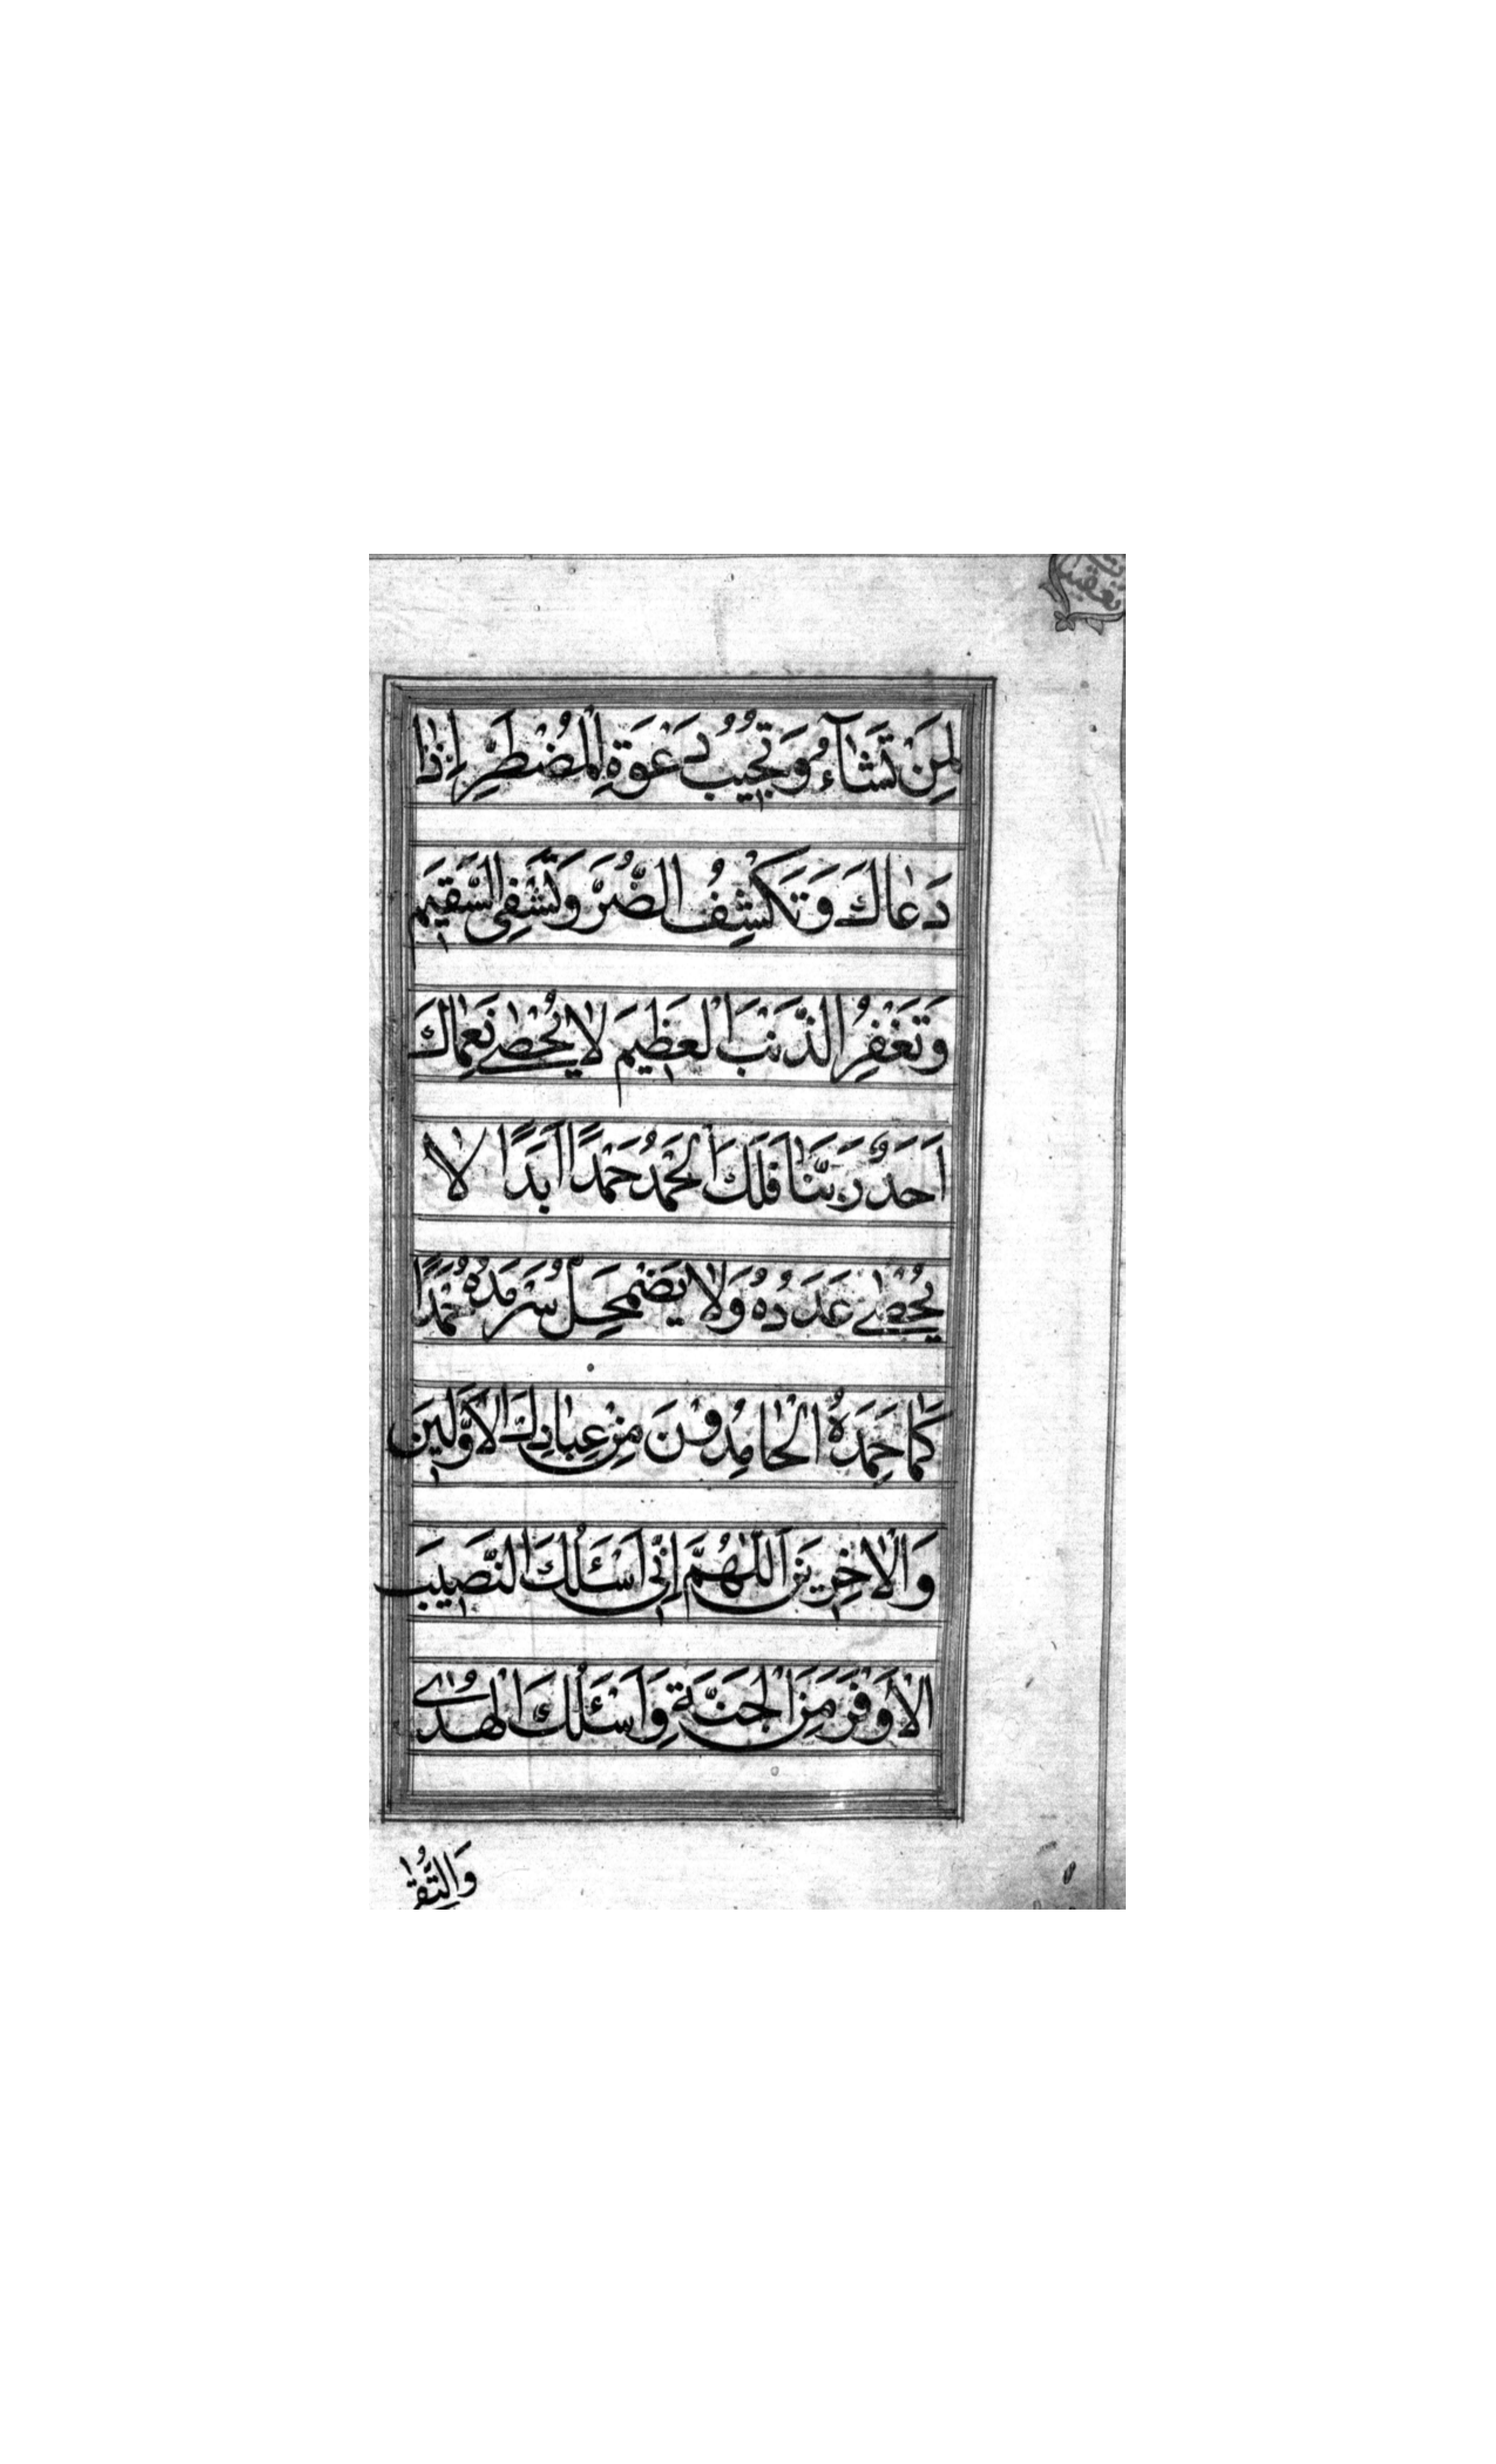 لِمَنْ تَشَآءُ وَتُجِيبُ دَعْوَةِ الْمُضْطَرِ اِذَا
دَعَاكَ وَتَكْشِفُ الضُّرَّ وَتَشْفِي السَّقِيمَ
وَتَغْفِرُ الذَّنْبَ الْعَظِيمَ لَا يُحْصٰى نَعْمَاكَ
اَحَدٌ رَبَّنَا فَلَكَ الْحَمْدُ حَمْدًا اَبَدًا لَا
يُحْصٰى عَدَدُهُ وَلَا يَضْمَحِلُّ سَرْمَدُهُ حَمْدًا
كَمَا حَمِدَهُ الْحَامِدُونَ مِنْ عِبَادِكَ الْاَوَّلِينَ
وَالْاٰخِرِينَ اَللّٰهُمَّ اِنِّي اَسْئَلُكَ النَّصِيبَ
الْاَوْفَرَ مِنَ الْجَنَّةِ وَاَسْئَلُكَ الْهُدٰى
وَالتُّقٰى